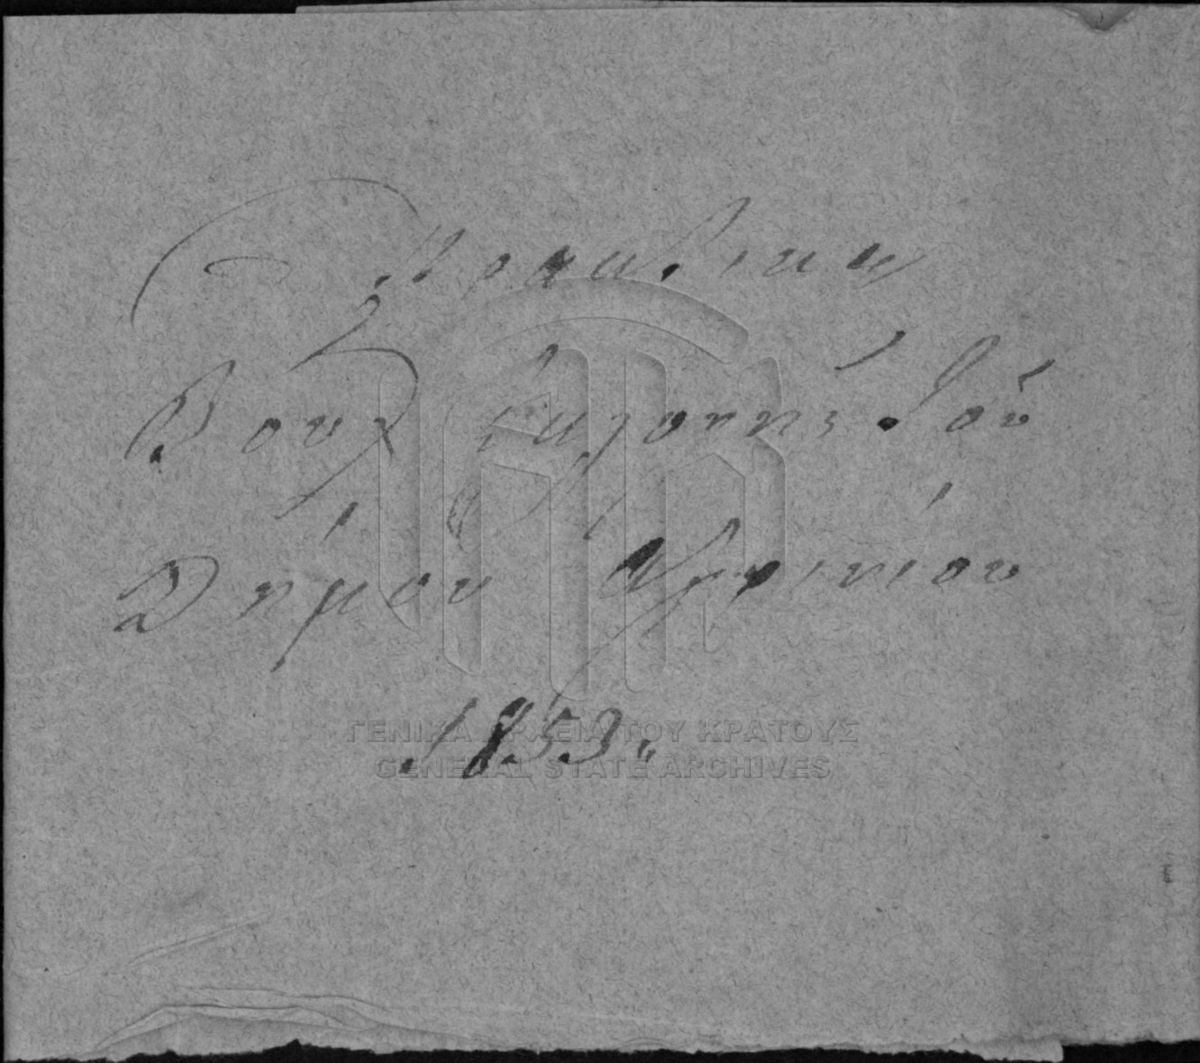 Πρακτικα
Βουλ ἐκλογης τοῦ
Δήμου Αγρινίου
1853"
ΓΕΝΙΚΑ ΑΡΧΕΙΑ ΤΟΥ ΚΡΑΤΟΥΣ
GENERAL STATE ARCHIVES